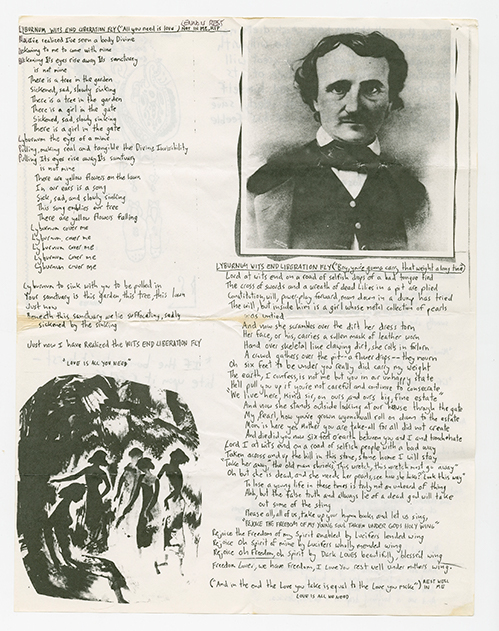 LYBURNUM WITS END LIBERATION FLY ("All you need is love")
Have I realized I've seen a body Divine
beckoning to me to come with mine
Beckoning Its eyes rise away Its sanctuary
is not mine
There is a tree in the garden
Sickened, sad, slowly sinking
There is a tree in the garden
There is a girl in the gate
Sickened, sad, slowly sinking
There is a girl in the gate
Lyburnum the eyes of a mine
Pulling, making real and tangible the Divine Invisibility
Pulling Its eyes rise away Its sanctuary
is not mine
There are yellow flowers on the lawn
In our ears is a song
Sick, sad, and slowly sinking
This song enables our tree
There are yellow flowers falling
Lyburnum cover me
Lyburnum, cover me
Lyburnum cover me
Lyburnum cover me
Lyburnum cover me
Lyburnum to sink with you to be pulled in
Your sanctuary is this garden, this tree, this lawn
Just now
Beneath this sanctuary we lie suffocating, sadly
sickened by the sinking
Just now I have Realized the WITS END LIBERATION FLY
"LOVE IS ALL YOU NEED"
LYBURNUM WITS END LIBERATION FLY ("Boy, you're gonna carry that weight a long time")
Lord at wits end on a road of selfish days of a bad tongue tied
The cross of swords and a wreath of dead lilies in a pit are plied
Constitution, will, power, play forward, mom down in a dump has tried
The will, but inside him is a girl whose metal collection of pearls
was untied
And now she scrambles over the dirt her dress torn
Her face, or his, carries a sullen mask of leather worn
Hand over skeletal line clawing dirt, she calls in forlorn
A crowd gathers over the pit - a flower drips - they mourn
Oh six feet to be under you really did carry my weight
The earth, I confess, is not me but you in an unhappy state
He'll pull you up if you're not careful and continue to consecrate
"We live here, Mind sir, on ours and ours big, fine estate"
And now she stands outside looking at our house through the gate
My Pearl, how you've grown wyrm will roll on down to the estate
Mom is here yes Mother you are take-all for all did not create
And died did you now six feet o' earth between you and I and tombstate
Lord I at wits end on a road of selfish people with a bad way
Taken across and up the hill in this stone, stone home I will stay
"Take her away" the old man shrieks "this wretch, this wretch must go away"
Oh but she is dead, and she needs her pearls, see how she was? Look this way"
To lose a young life in these times is truly not an unheard of thing
Ahh, but the false truth and always lie of a dead god will take
out some of the sting
Please all, all of us, take up your hymn books and let us sing,
"REJOICE THE FREEDOM OF MY YOUNG SOUL TAKEN UNDER GODS HOLY WING"
Rejoice the Freedom of my Spirit enabled by Lucifers bended wing
Rejoice Oh Spirit of mine by Lucifers wholly mended wing
Rejoice oh Freedom, oh Spirit by Dark Loves beautifully, blessed wing
Freedom Lover, we have Freedom, I Love You rest well under mothers wing.
("And in the end the Love you take is equal to the Love you make") REST WELL
IN ME
LOVE IS ALL WE NEED